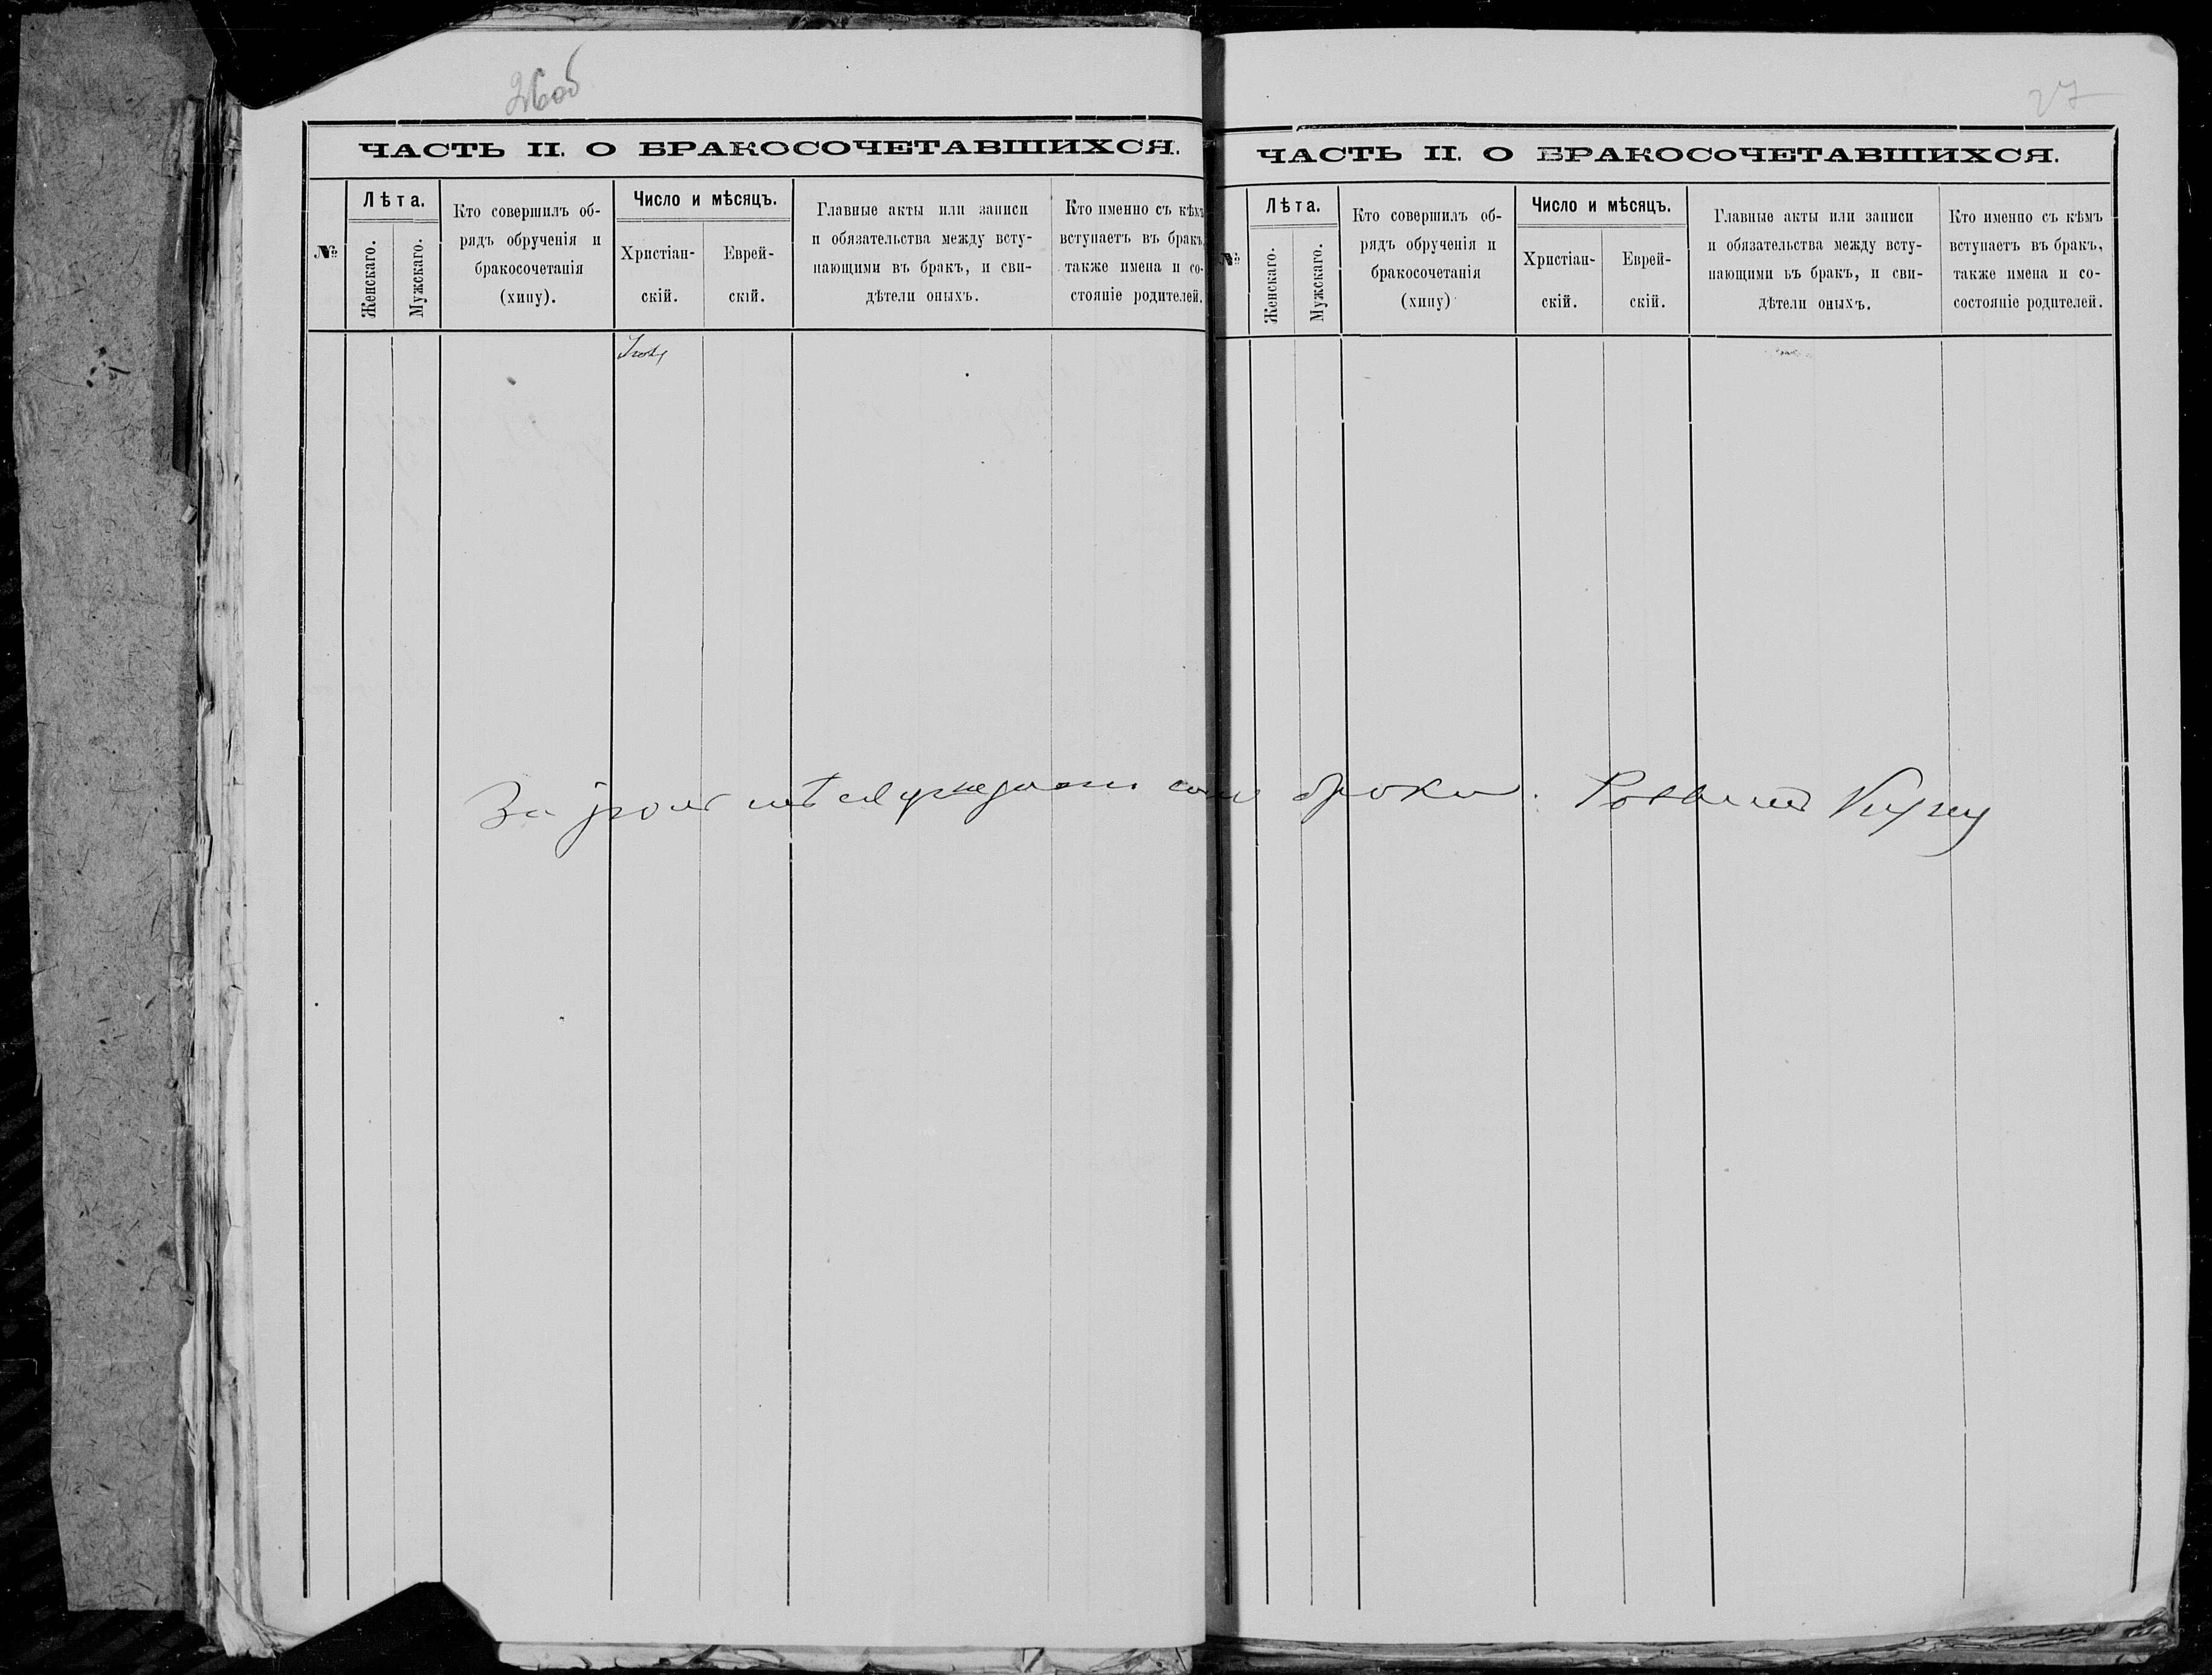 26об
ЧАСТЬ II. О БРАКОСОЧЕТАВШИХСЯ.
№
Лѣта.
Женскаго.
Мужскаго.
Кто совершилъ об-
рядъ обрученія и
бракосочетанія
(хипу).
Число и мѣсяцъ.
Христіан-
скій.
Еврей-
скій.
Главные акты или записи
и обязательства между всту-
пающими въ бракъ, и сви-
дѣтели оныхъ.
Кто именно съ кѣмъ
вступаетъ въ бракъ,
также имена и со-
стояніе родителей.
За
27
ЧАСТЬ II. О БРАКОСОЧЕТАВШИХСЯ.
№
Лѣта.
Женскаго.
Мужскаго.
Кто совершилъ об-
рядъ обрученія и
бракосочетанія
(хипу)
Число и мѣсяцъ.
Христіан-
скій.
Еврей-
скій.
Главные акты или записи
и обязательства между всту-
пающими въ бракъ, и сви-
дѣтели оныхъ.
Кто именно съ кѣмъ
вступаетъ въ бракъ,
также имена и со-
состояніе родителей.